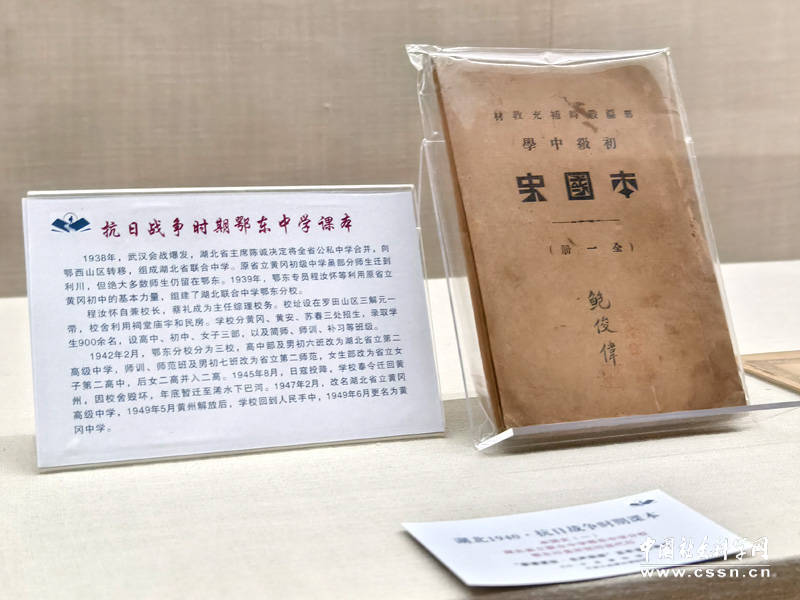 抗日战争时期鄂东中学课本
1938年，武汉会战爆发，湖北省主席陈诚决定将全省公私中学合并，向
鄂西山区转移，组成湖北省联合中学。原省立黄冈初级中学虽部分师生迁到
利川，但绝大多数师生仍留在鄂东。1939年，鄂东专员程汝怀等利用原省立
黄冈初中的基本力量，组建了湖北联合中学鄂东分校。
程汝怀自兼校长，蔡礼成为主任综理校务。校址设在罗田山区三解元一
带，校舍利用祠堂庙宇和民房。学校分黄冈、黄安、苏春三处招生，录取学
生900余名，设高中、初中、女子三部，以及简师、师训、补习等班级。
1942年2月，鄂东分校分为三校，高中部及男初六班改为湖北省立第二
高级中学，师训、师范班及男初七班改为省立第二师范，女生部改为省立女
子第二高中，后女二高并入二高。1945年8月，日寇投降，学校奉令迁回黄
州，因校舍毁坏，年底暂迁至浠水下巴河。1947年2月，改名湖北省立黄冈
高级中学，1949年5月黄州解放后，学校回到人民手中，1949年6月更名为黄
冈中学。
材教充補時戰區鄂
學中級初
史國本
（冊一全）
鲍俊偉
湖北1940·抗日战争时期课本
中国社会科学网
www.cssn.cn